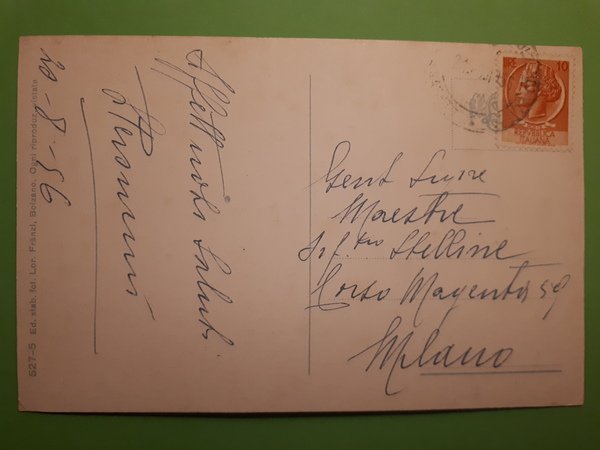 Affettuosi Saluti
10-8-56
527-5 Ed. stab. fot. Lor. Fränzl, Bolzano. Ogni riproduz. vietata
LIRE 10
REPUBBLICA
ITALIANA
Gent Sig.re
Maestre
Stelline
Corso Magenta 59
Milano